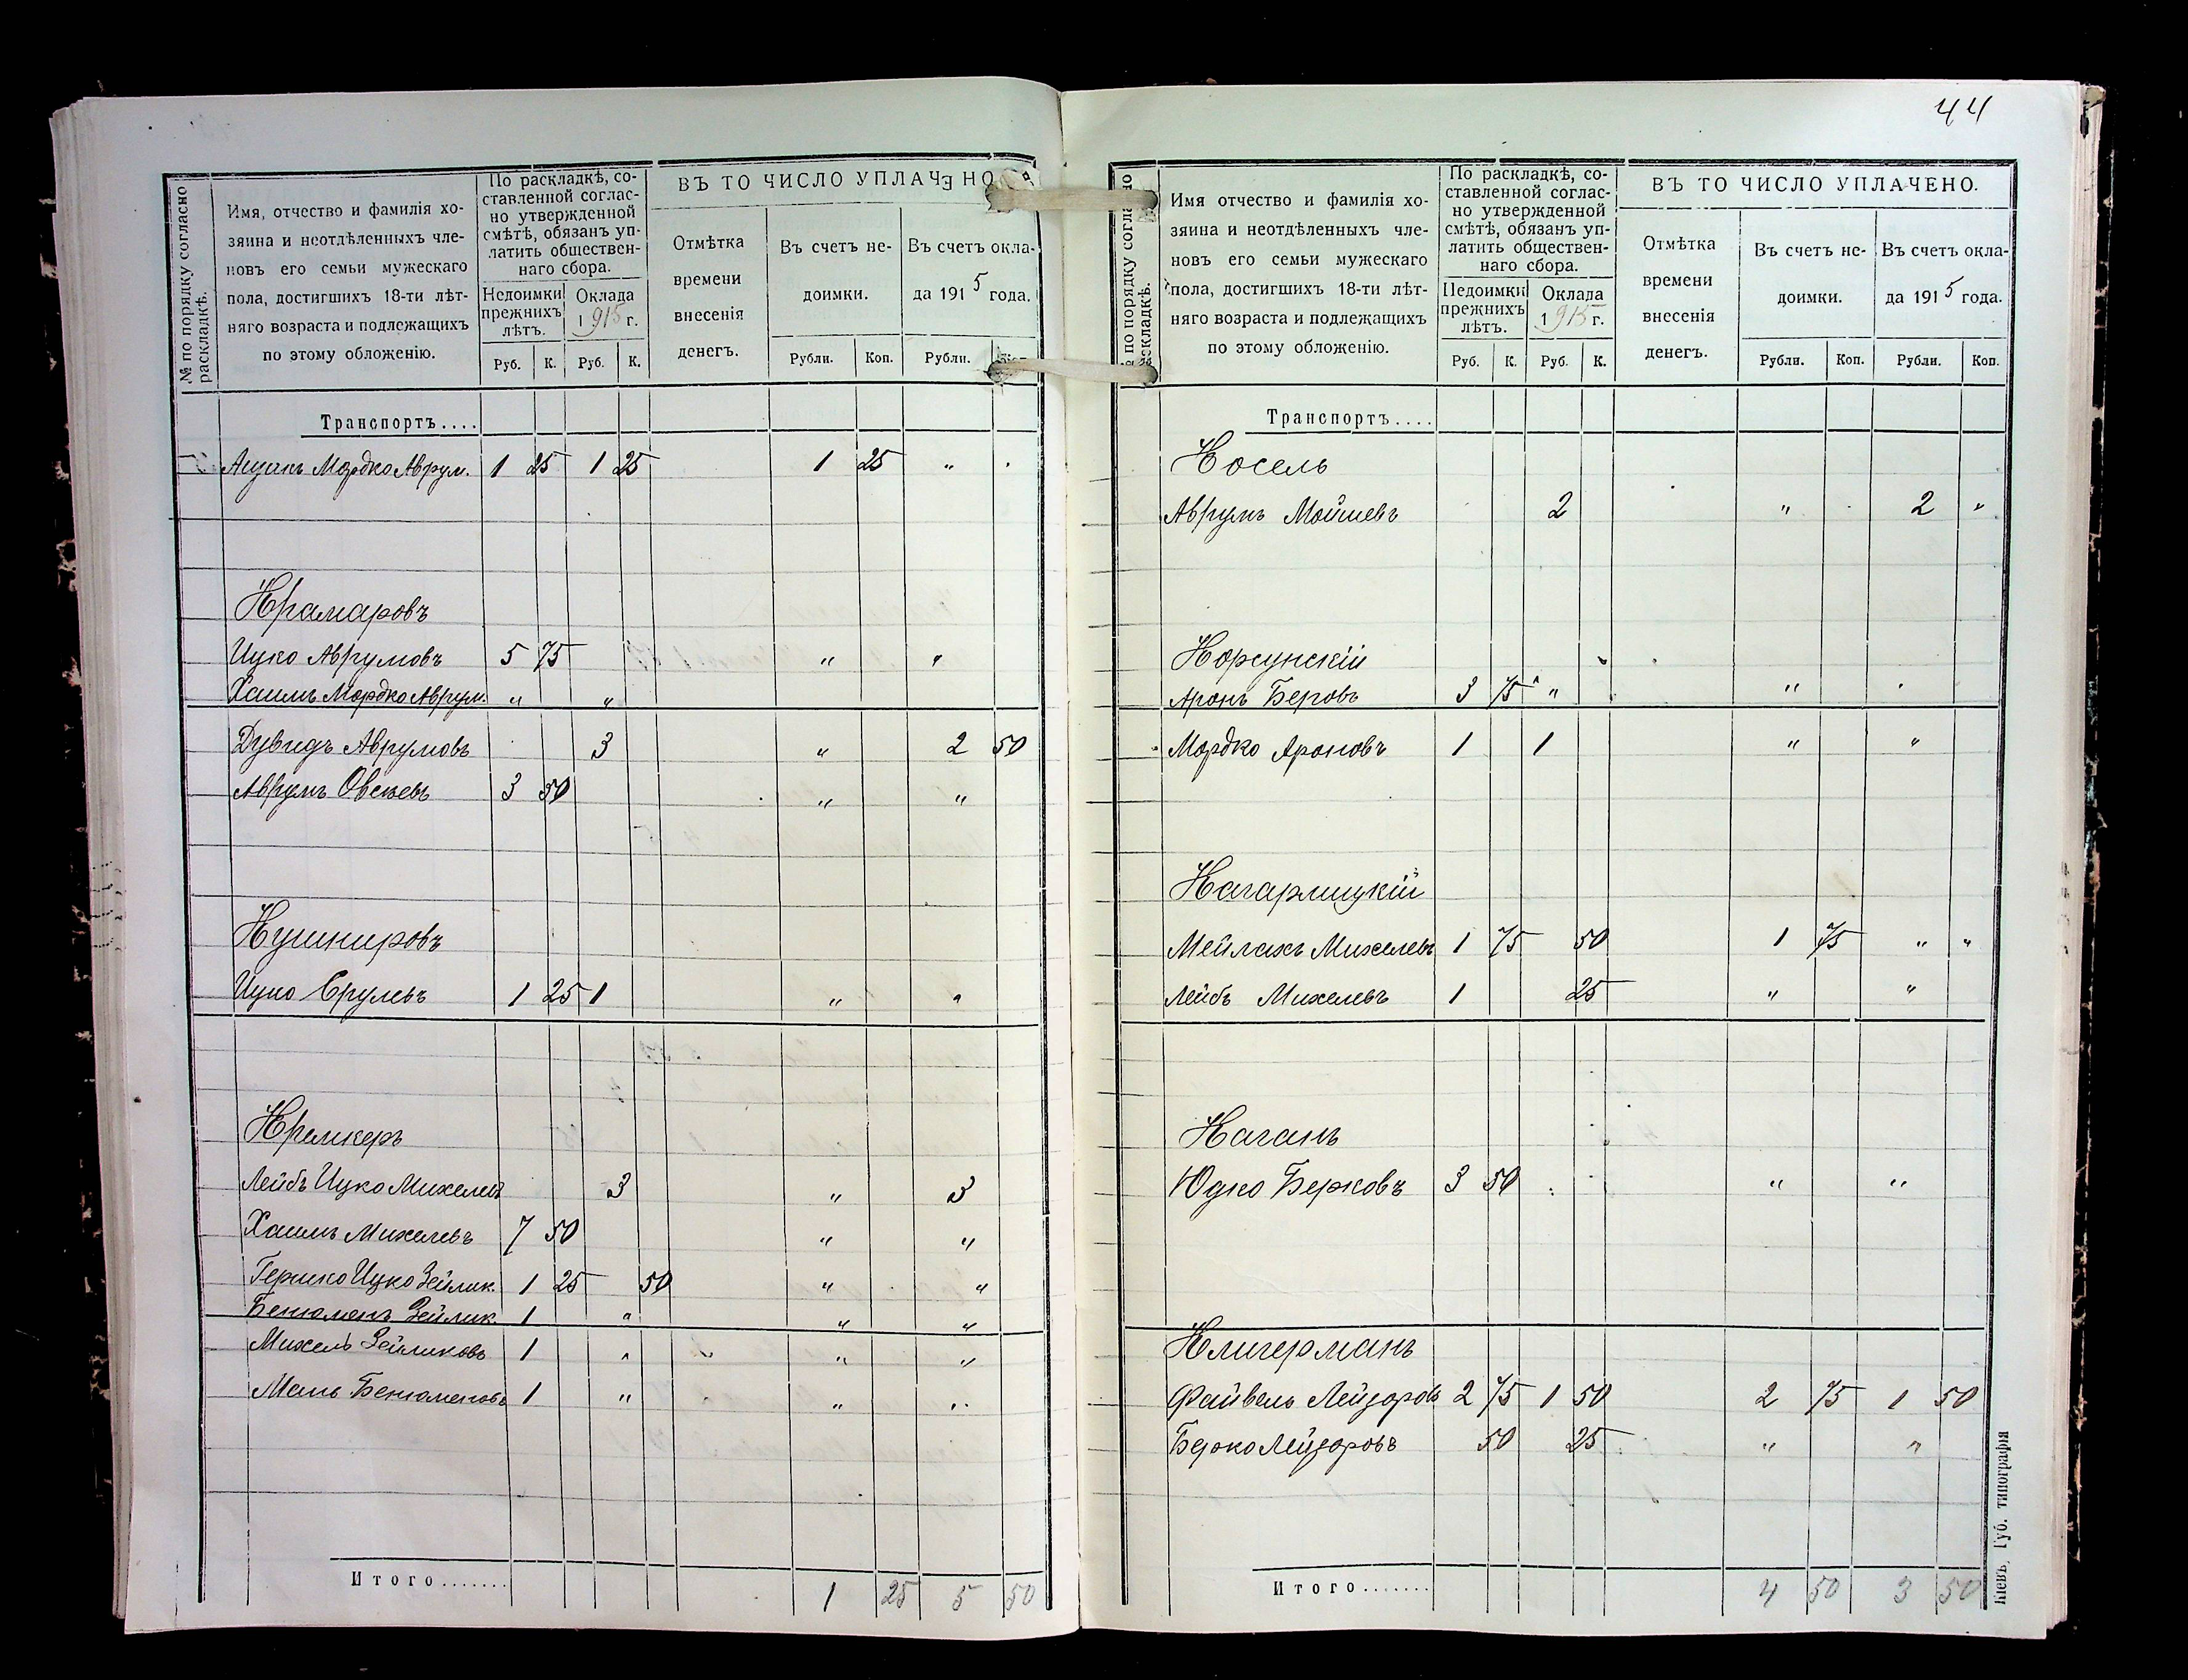 44
№ по порядку согласно раскладкѣ.
Имя, отчество и фамилія хо-
зяина и неотдѣленныхъ чле-
новъ его семьи мужескаго
пола, достигшихъ 18-ти лѣт-
няго возраста и подлежащихъ
по этому обложенію.
По раскладкѣ, со-
ставленной соглас-
но утвержденной
смѣтѣ, обязанъ уп-
латить обществен-
наго сбора.
Недоимки
прежнихъ
лѣтъ.
Оклада
1915 г.
Руб. К. Руб. К.
ВЪ ТО ЧИСЛО УПЛАЧЕНО
Отмѣтка
времени
внесенія
денегъ.
Въ счетъ не-
доимки.
Въ счетъ окла-
да 1915 года.
Рубли. Коп. Рубли. Коп.
Транспортъ....
Мордко Аврум. 1 25 1 25 1 25 "
Крамаровъ
Ицко Аврумовъ 5 75 " "
Хаимъ Мордко Аврум. " "
Дувидъ Аврумовъ 3 " 2 50
Аврумъ Овсѣевъ 3 50 " "
Кушнировъ
Ицко Срулевъ 1 25 1 " "
Кремеръ
Лейбъ Ицко Михелевъ 3 " 3
Хаимъ Михелевъ 7 50 " "
Гершко Ицко Зейлик. 1 25 50 " "
Бенюменъ Зейлик 1 " " "
Михель Зейликовъ 1 " " "
Бенюменовъ 1 " " "
Итого....... 1 25 5 50
№ по порядку согласно раскладкѣ.
Имя отчество и фамилія хо-
зяина и неотдѣленныхъ чле-
новъ его семьи мужескаго
пола, достигшихъ 18-ти лѣт-
няго возраста и подлежащихъ
по этому обложенію.
По раскладкѣ, со-
ставленной соглас-
но утвержденной
смѣтѣ, обязанъ уп-
латить обществен-
наго сбора.
Недоимки
прежнихъ
лѣтъ.
Оклада
1915 г.
Руб. К. Руб. К.
ВЪ ТО ЧИСЛО УПЛАЧЕНО.
Отмѣтка
времени
внесенія
денегъ.
Въ счетъ не-
доимки.
Въ счетъ окла-
да 1915 года.
Рубли. Коп. Рубли. Коп.
Транспортъ....
Косель
Аврумъ Мойшевъ 2 " 2 "
Корсунскій
Аронъ Беровъ 3 75 " "
Мордко Ароновъ 1 1 " "
Кагарлицкій
Мейлахъ Михелевъ 1 75 50 1 75 " "
Лейбъ Михелевъ 1 25 " "
Каганъ
Юдко Берковъ 3 50 " "
Клигерманъ
Файвель Лейзоровъ 2 75 1 50 2 75 1 50
Берко Лейзоровъ 50 25 " "
Итого....... 4 50 3 50
Кіевъ, Губ. типографія